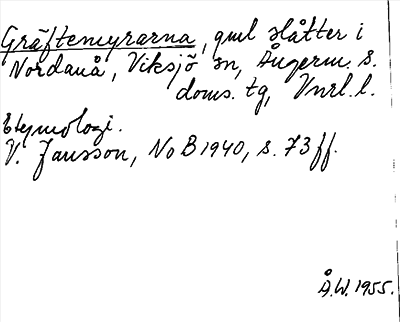 Gräftemyrarna, gml slåtter i
Nordanå, Viksjö sn, Ångerm. s.
doms. tg, Vnrl. l.
Etymologi.
V. Jansson, NoB 1940, s. 73 ff.
Å.W. 1955.